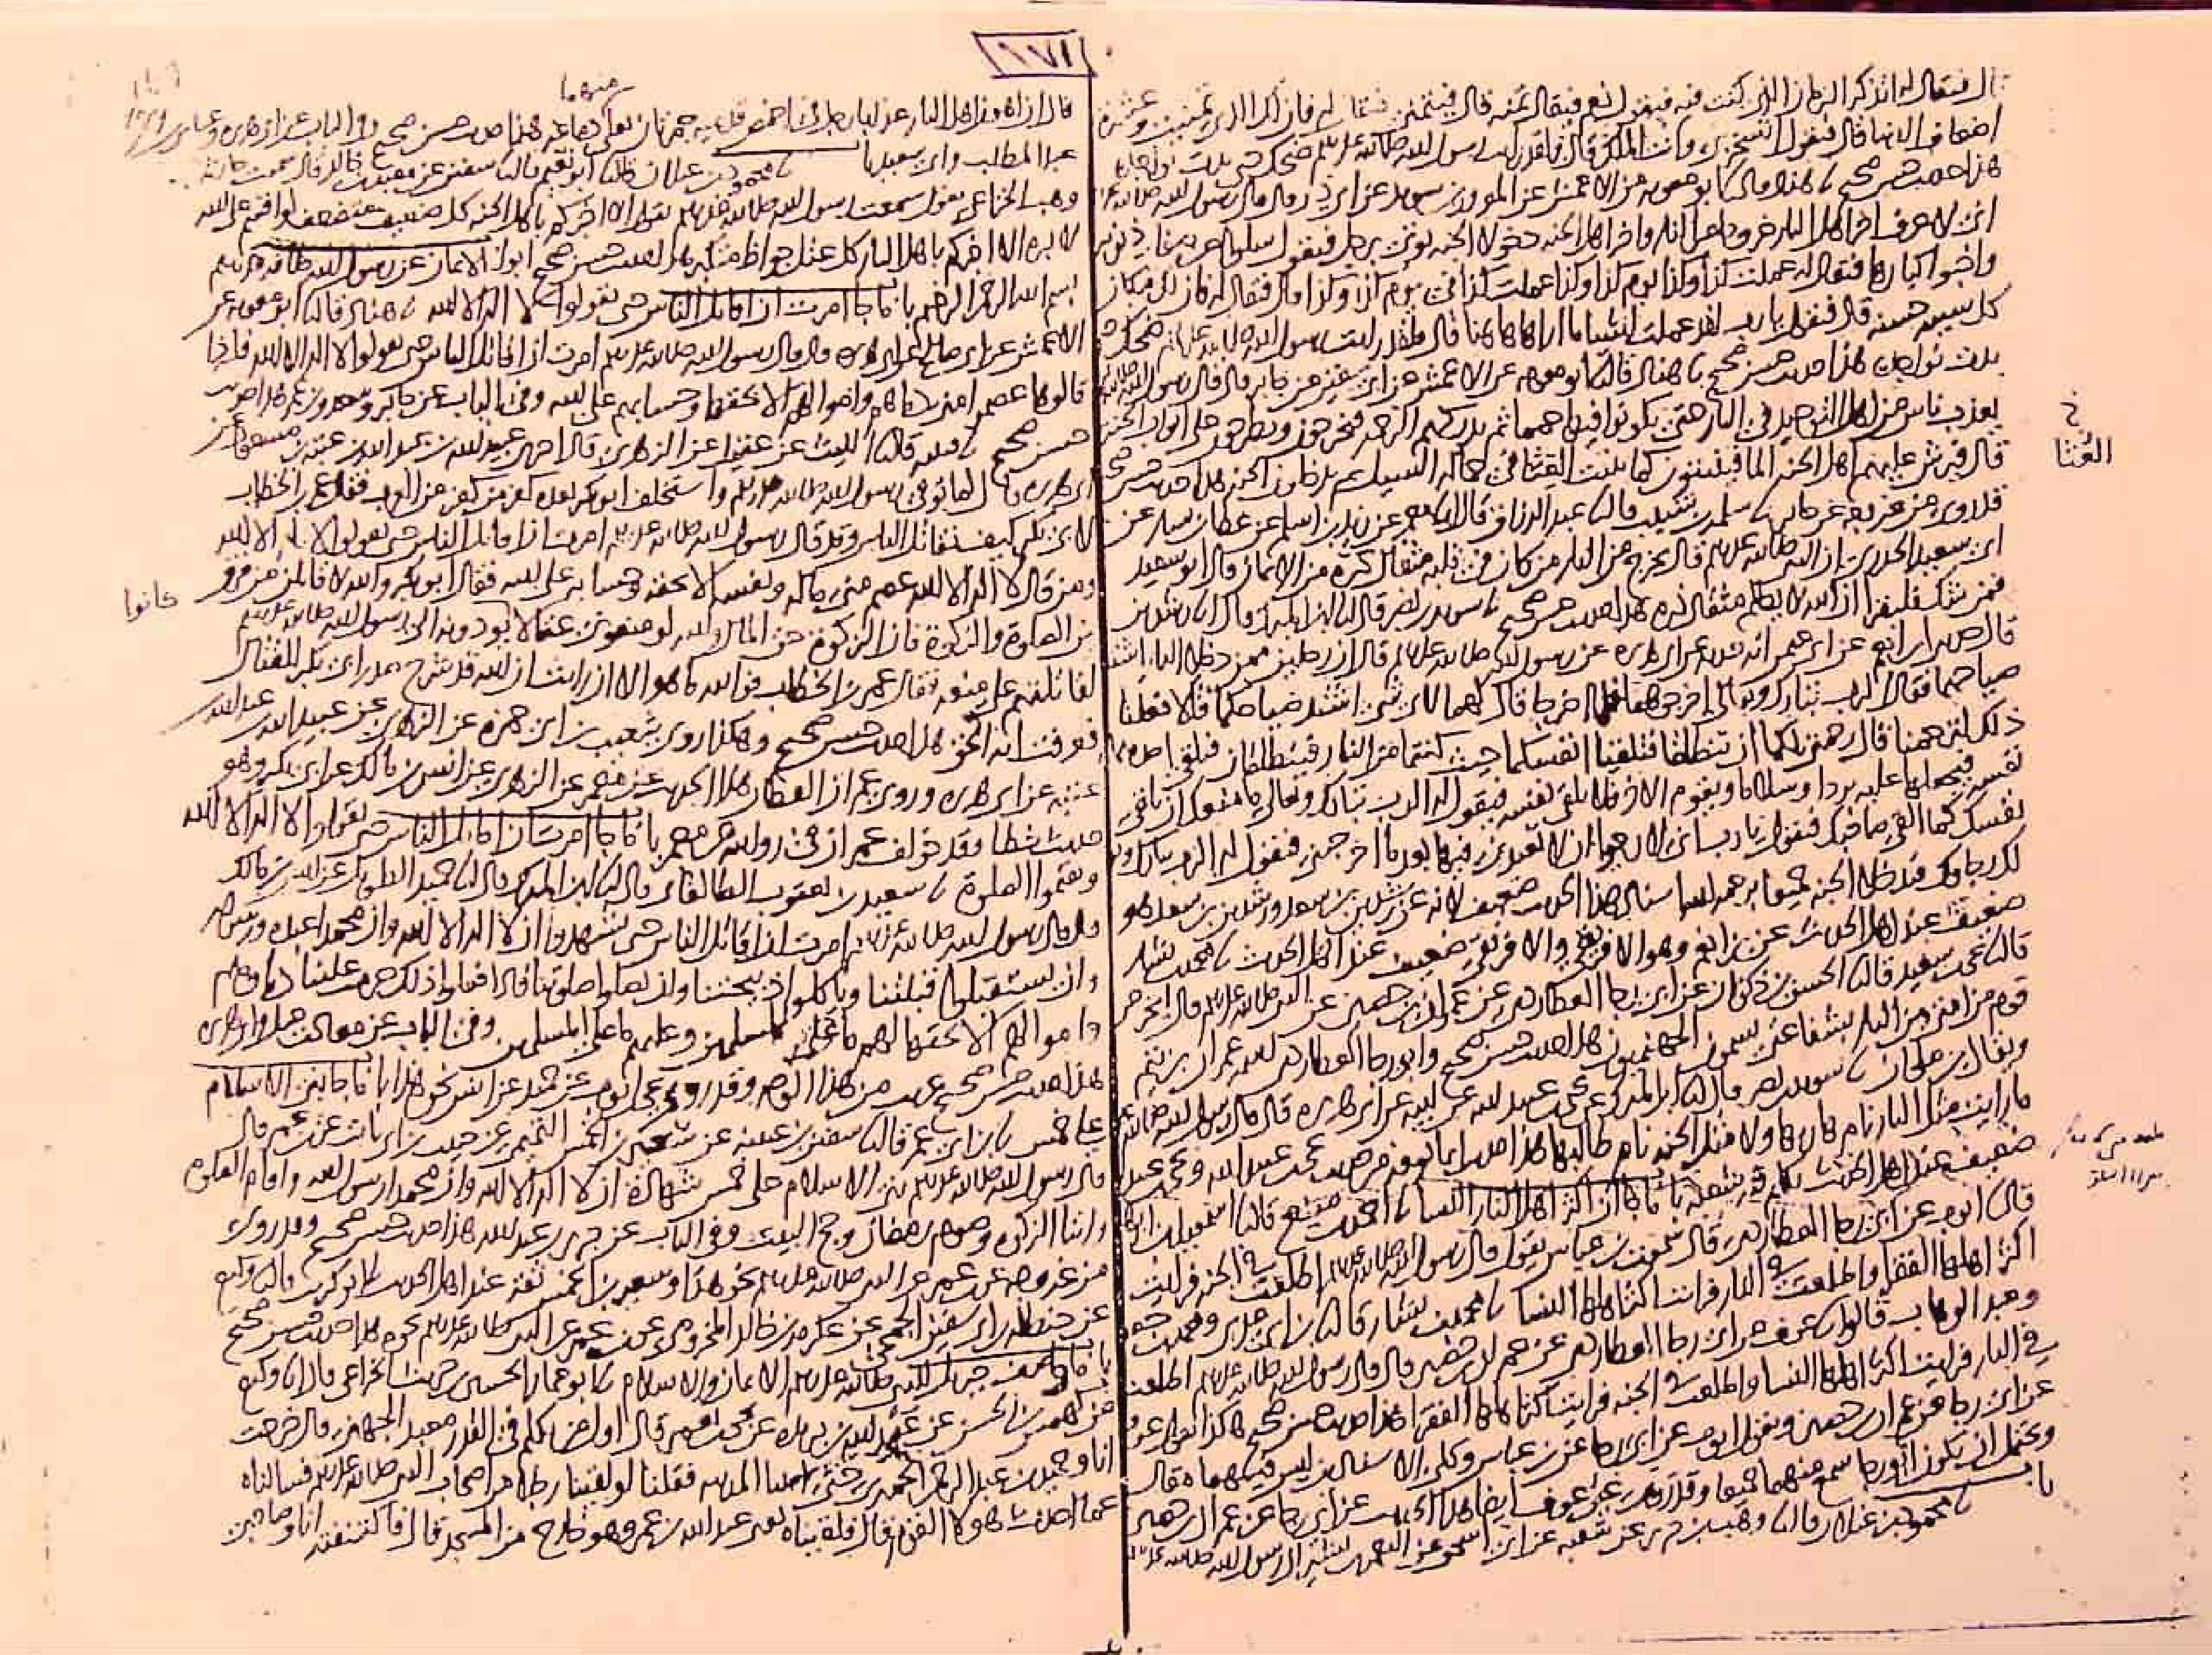 ١٧١
فيقال له اتذكر الزمان الذي كنت فيه فيقول نعم فيقال تمنه قال فيتمنى فيقال له فان لك الذي تمنيت وعشرة
اضعاف الدنيا قال فيقول اتسخر بي وانت الملك قال فلقد رايت رسول الله صلى الله عليه وسلم ضحك حتى بدت نواجذه
هذا حديث حسن صحيح نا هناد قال نا ابو معويه عن الاعمش عن المعرور بن سويد عن ابي ذر قال قال رسول الله صلى الله عليه
اني لاعرف اخر اهل النار خروجا من النار واخر اهل الجنه دخولا الجنه يوتى برجل فيقول سلوا عن صغار ذنوبه
واخبوا كبارها فيقال له عملت كذا وكذا يوم كذا وكذا عملت كذا في يوم كذا وكذا قال فيقال له فان لك مكان
كل سيئه حسنه قال فيقول يا رب لقد عملت اشيا ما اراها هاهنا قال فلقد رايت رسول الله صلى الله عليه وسلم ضحك حتى
بدت نواجذه هذا حديث حسن صحيح نا هناد قال نا ابو معويه عن الاعمش عن ابي سفين عن جابر قال قال رسول الله صلى الله عليه
يعذب ناس من اهل التوحيد في النار حتى يكونوا فيها حمما ثم تدركهم الرحمه فيخرجون ويطرحون على ابواب الجنه
قال فيرش عليهم اهل الجنه الما فينبتون كما ينبت الغثا في حماله السيل ثم يدخلون الجنه هذا حديث حسن صحيح
قد روي من غير وجه عن جابر نا سلمه بن شبيب قال نا عبد الرزاق قال انا معمر عن زيد بن اسلم عن عطا بن يسار عن
ابي سعيد الخدري ان النبي صلى الله عليه وسلم قال يخرج من النار من كان في قلبه مثقال ذرة من الايمان قال ابو سعيد
فمن شك فليقرا ان الله لا يظلم مثقال ذره هذا حديث حسن صحيح نا سويد بن نصر قال نا ابن المبارك قال انا رشدين
قال حدثني ابن انعم عن ابي عثمن انه حدثه عن ابي هريره عن رسول الله صلى الله عليه وسلم قال ان رجلين ممن دخل النار اشتد
صياحهما فقال الرب تبارك وتعالى اخرجوهما فلما اخرجا قال لهما لاي شي اشتد صياحكما قالا فعلنا
ذلك لترحمنا قال رحمتي لكما ان تنطلقا فتلقيا انفسكما حيث كنتما من النار فينطلقان فيلقي احدهما
نفسه فيجعلها عليه بردا وسلاما ويقوم الاخر فلا يلقي نفسه فيقول له الرب تبارك وتعالى ما منعك ان تلقي
نفسك كما القى صاحبك فيقول يا رب اني لارجو ان لا تعيدني فيها بعد ما اخرجتني فيقول له الرب تبارك وتعالى
لك رجاوك فيدخلان الجنه جميعا برحمه الله اسناد هذا الحديث ضعيف لانه عن رشدين بن سعد ورشدين بن سعد هو
ضعيف عند اهل الحديث عن ابن انعم وهو الافريقي والافريقي ضعيف عند اهل الحديث نا محمد بن بشار
قال نا يحيى بن سعيد قال نا الحسن بن ذكوان عن ابي رجا العطاردي عن عمران بن حصين عن النبي صلى الله عليه وسلم قال ليخرجن
قوم من امتي من النار بشفاعتي يسمون الجهنميون هذا حديث حسن صحيح وابو رجا العطاردي اسمه عمران بن تيم
ويقال بن ملحان نا سويد بن نصر قال نا ابن المبارك عن يحيى بن عبيد الله عن ابيه عن ابي هريره قال قال رسول الله صلى الله عليه
ما رايت مثل النار نام هاربها ولا مثل الجنه نام طالبها هذا حديث انما نعرفه من حديث يحيى بن عبيد الله ويحيى بن عبيد الله
ضعيف عند اهل الحديث تكلم فيه شعبه باب ما جا ان اكثر اهل النار النسا نا احمد بن منيع قال نا اسمعيل بن ابرهيم
قال نا ايوب عن ابي رجا العطاردي قال سمعت بن عباس يقول قال رسول الله صلى الله عليه وسلم اطلعت في الجنه فرايت
اكثر اهلها الفقرا واطلعت في النار فرايت اكثر اهلها النسا نا محمد بن بشار قال نا بن ابي عدي ومحمد بن جعفر
وعبد الوهاب قالوا نا عوف عن ابي رجا العطاردي عن عمران بن حصين قال قال رسول الله صلى الله عليه وسلم اطلعت
في النار فرايت اكثر اهلها النسا واطلعت في الجنه فرايت اكثر اهلها الفقرا هذا حديث حسن صحيح هكذا يقول عوف
عن ابي رجا عن عمران بن حصين ويقول ايوب عن ابي رجا عن بن عباس وكلا الاسنادين ليس فيهما مقال
ويحتمل ان يكون ابو رجا سمع منهما جميعا وقد روى غير عوف ايضا هذا الحديث عن ابي رجا عن عمران بن حصين
باب نا محمود بن غيلان قال نا وهب بن جرير عن شعبه عن ابي اسحق عن النعمن بن بشير ان رسول الله صلى الله عليه
الغثا
منهما
قال ان اهون اهل النار عذابا رجل في اخمص قدميه جمرتان يغلي دماغه هذا حديث حسن صحيح وفي الباب عن ابي هريره وعباس بن
عبد المطلب وابي سعيد باب نا محمود بن غيلان قال نا ابو نعيم قال نا سفين عن معبد بن خالد قال سمعت حارثه بن
وهب الخزاعي يقول سمعت رسول الله صلى الله عليه وسلم يقول الا اخبركم باهل الجنه كل ضعيف متضعف لو اقسم على الله
لابره الا اخبركم باهل النار كل عتل جواظ متكبر هذا حديث حسن صحيح ابواب الايمان عن رسول الله صلى الله عليه وسلم
بسم الله الرحمن الرحيم باب ما جا امرت ان اقاتل الناس حتى يقولوا لا اله الا الله نا هناد قال نا ابو معويه عن
الاعمش عن ابي صالح عن ابي هريره قال قال رسول الله صلى الله عليه وسلم امرت ان اقاتل الناس حتى يقولوا لا اله الا الله فاذا
قالوها عصموا مني دماهم واموالهم الا بحقها وحسابهم على الله وفي الباب عن جابر وسعد وبن عمر هذا حديث
حسن صحيح نا قتيبه قال نا الليث عن عقيل عن الزهري قال اخبرني عبيد الله بن عبد الله بن عتبه بن مسعود عن
ابي هريره قال لما توفي رسول الله صلى الله عليه وسلم واستخلف ابو بكر بعده كفر من كفر من العرب فقال عمر بن الخطاب
لابي بكر كيف تقاتل الناس وقد قال رسول الله صلى الله عليه وسلم امرت ان اقاتل الناس حتى يقولوا لا اله الا الله
ومن قال لا اله الا الله عصم مني ماله ونفسه الا بحقه وحسابه على الله فقال ابو بكر والله لاقاتلن من فرق
بين الصلوة والزكوة فان الزكوة حق المال والله لو منعوني عقالا يودونه الى رسول الله صلى الله عليه وسلم
كانوا
لقاتلتهم على منعه فقال عمر بن الخطاب فوالله ما هو الا ان رايت ان الله قد شرح صدر ابي بكر للقتال
فعرفت انه الحق هذا حديث حسن صحيح وهكذا روى شعيب بن ابي حمزه عن الزهري عن عبيد الله بن عبد الله بن
عتبه عن ابي هريره وروى عمران القطان هذا الحديث عن معمر عن الزهري عن انس بن مالك عن ابي بكر وهو
حديث خطا وقد خولف عمران في روايته عن معمر باب ما جا امرت ان اقاتل الناس حتى يقولوا لا اله الا الله
ويقيموا الصلوة نا سعيد بن يعقوب الطالقاني قال نا ابن المبارك قال نا حميد الطويل عن انس بن مالك
قال قال رسول الله صلى الله عليه وسلم امرت ان اقاتل الناس حتى يشهدوا ان لا اله الا الله وان محمدا عبده ورسوله
وان يستقبلوا قبلتنا وياكلوا ذبيحتنا وان يصلوا صلوتنا فاذا فعلوا ذلك حرمت علينا دماوهم
واموالهم الا بحقها لهم ما للمسلمين وعليهم ما على المسلمين وفي الباب عن معاذ بن جبل وابي هريره
هذا حديث حسن صحيح غريب من هذا الوجه وقد روى يحيى بن ايوب عن حميد عن انس نحو هذا باب ما جا بني الاسلام
على خمس نا بن ابي عمر قال نا سفين بن عيينه عن سعير بن الخمس التميمي عن حبيب بن ابي ثابت عن بن عمر قال
قال رسول الله صلى الله عليه وسلم بني الاسلام على خمس شهادة ان لا اله الا الله وان محمدا رسول الله واقام الصلوة
وايتا الزكوه وصوم رمضان وحج البيت وفي الباب عن جرير بن عبد الله هذا حديث حسن صحيح وقد روي
من غير وجه عن بن عمر عن النبي صلى الله عليه وسلم نحو هذا وسعير بن الخمس ثقه عند اهل الحديث نا ابو كريب قال نا وكيع
عن حنظله بن ابي سفين الجمحي عن عكرمه بن خالد المخزومي عن بن عمر عن النبي صلى الله عليه وسلم نحوه هذا حديث حسن صحيح
باب ما وصف جبريل للنبي صلى الله عليه وسلم الايمان والاسلام نا ابو عمار الحسين بن حريث الخزاعي قال انا وكيع
عن كهمس بن الحسن عن عبد الله بن بريده عن يحيى بن يعمر قال اول من تكلم في القدر معبد الجهني قال خرجت
انا وحميد بن عبد الرحمن الحميري حتى اتينا المدينه فقلنا لو لقينا رجلا من اصحاب النبي صلى الله عليه وسلم فسالناه
عما احدث هولا القوم قال فلقيناه يعني عبد الله بن عمر وهو خارج من المسجد قال فاكتنفته انا وصاحبي